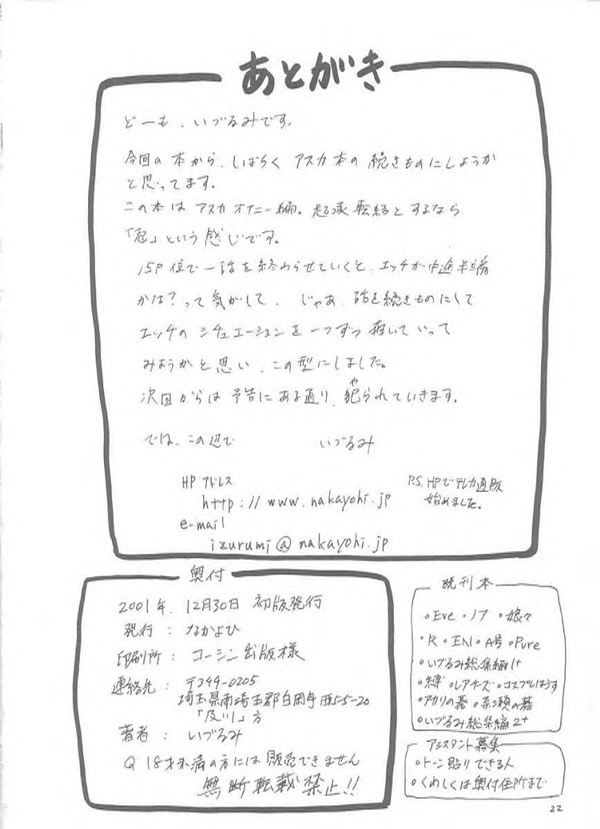 あとがき
どーも、いづるみです。
今回の本から、しばらく アスカ本の続きものにしようか
と思ってます。
この本は アスカオナニー編。起承転結とするなら
「起」という感じです。
15P位で一話を終わらせていくと、エッチが中途半端
かな?って気がして、じゃあ、話を続きものにして
エッチの シチュエーションを 一つずつ 描いて いって
みようかと思い、この型にしました。
次回からは 予告にある通り、犯られていきます。
や
では、この辺で いづるみ
HP アドレス
http://www.nakayohi.jp
e-mail
izurumi@nakayohi.jp
P.S. HPでテレカ通販
始めました。
奥付
2001年、12月30日 初版発行
発行 : なかよひ
印刷所 : コーシン出版様
連絡先 : 〒349-0205
埼玉県南埼玉郡白岡町西5-5-20
「及川」方
著者 : いづるみ
18才未満の方には 販売できません
無断転載禁止!!
既刊本
・Eve ・ノア ・娘々
・R ・EN ・A号 ・Pure
・いづるみ総集編1+
・縛 ・レアチーズ ・コスプレはうす
・アカリの碁 ・奈瀬の碁
・いづるみ総集編2+
アシスタント募集
・トーン貼りできる人
・くわしくは奥付住所まで
22